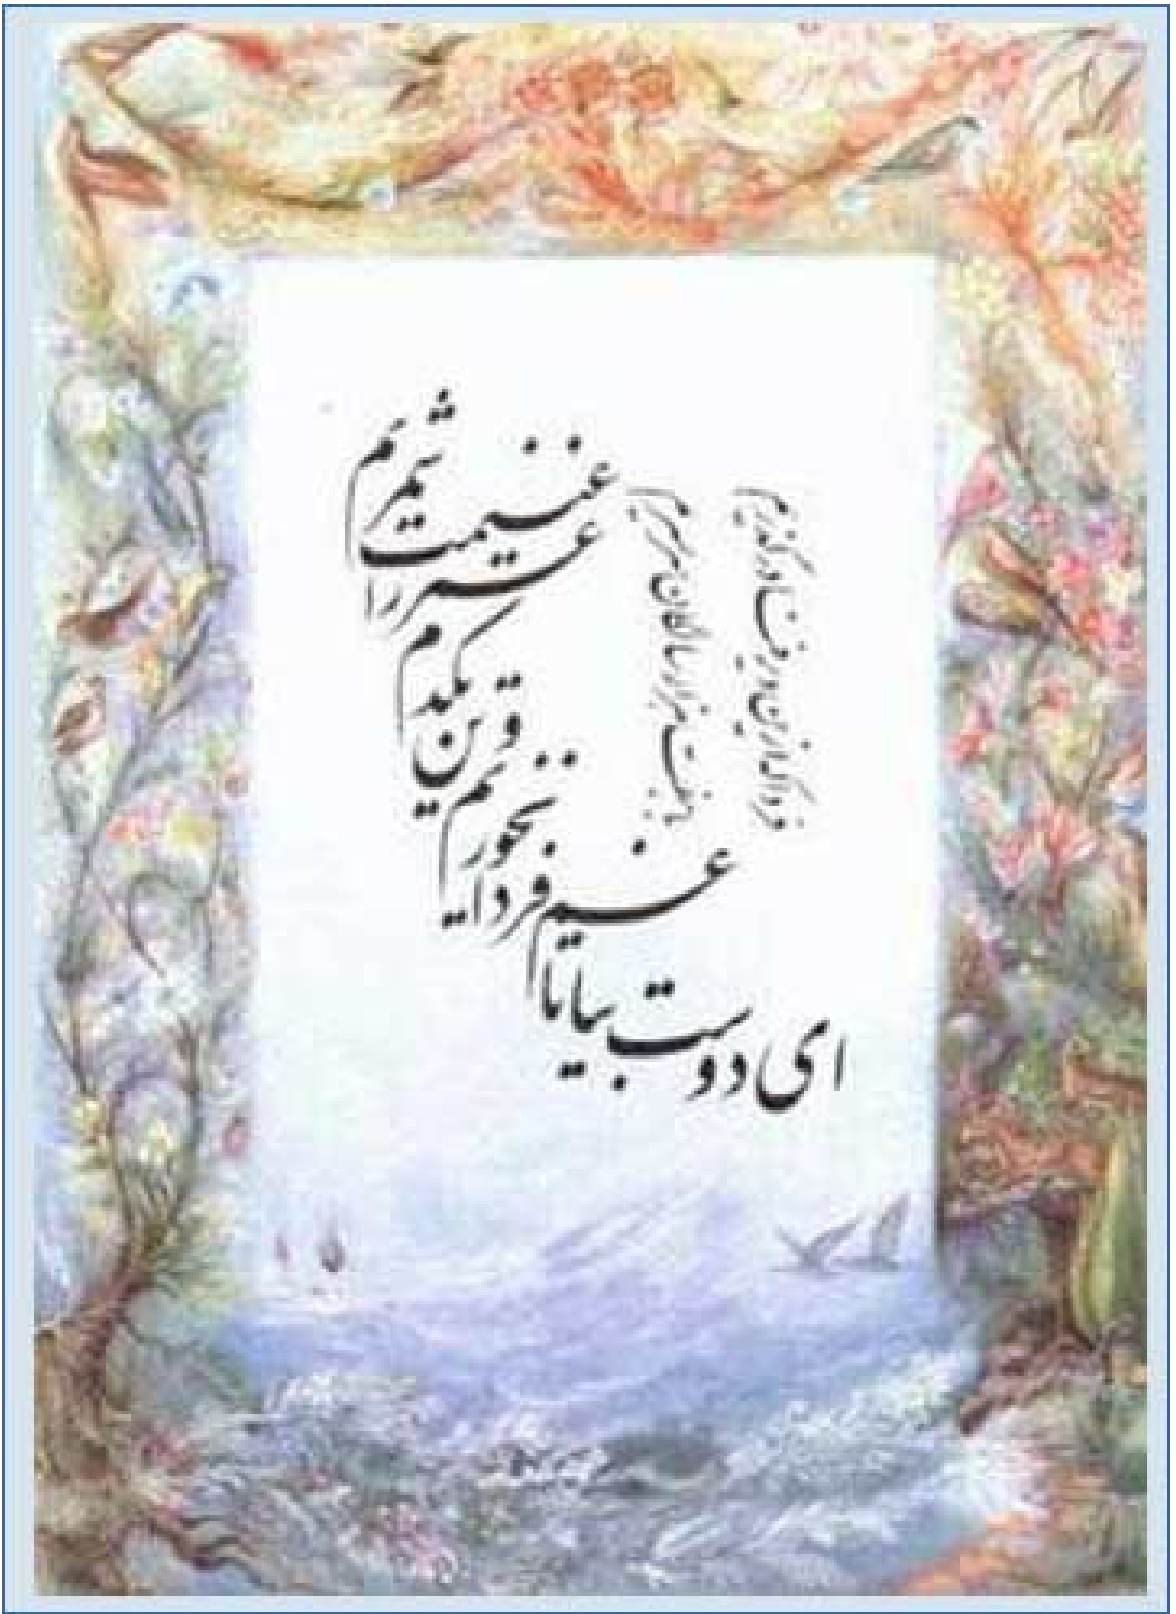 ای دوست بیا تا غم فردا نخوریم
وین یکدم عمر را غنیمت شمریم
فردا که ازین دیر فنا درگذریم
با هفت هزار سالگان سر بسریم